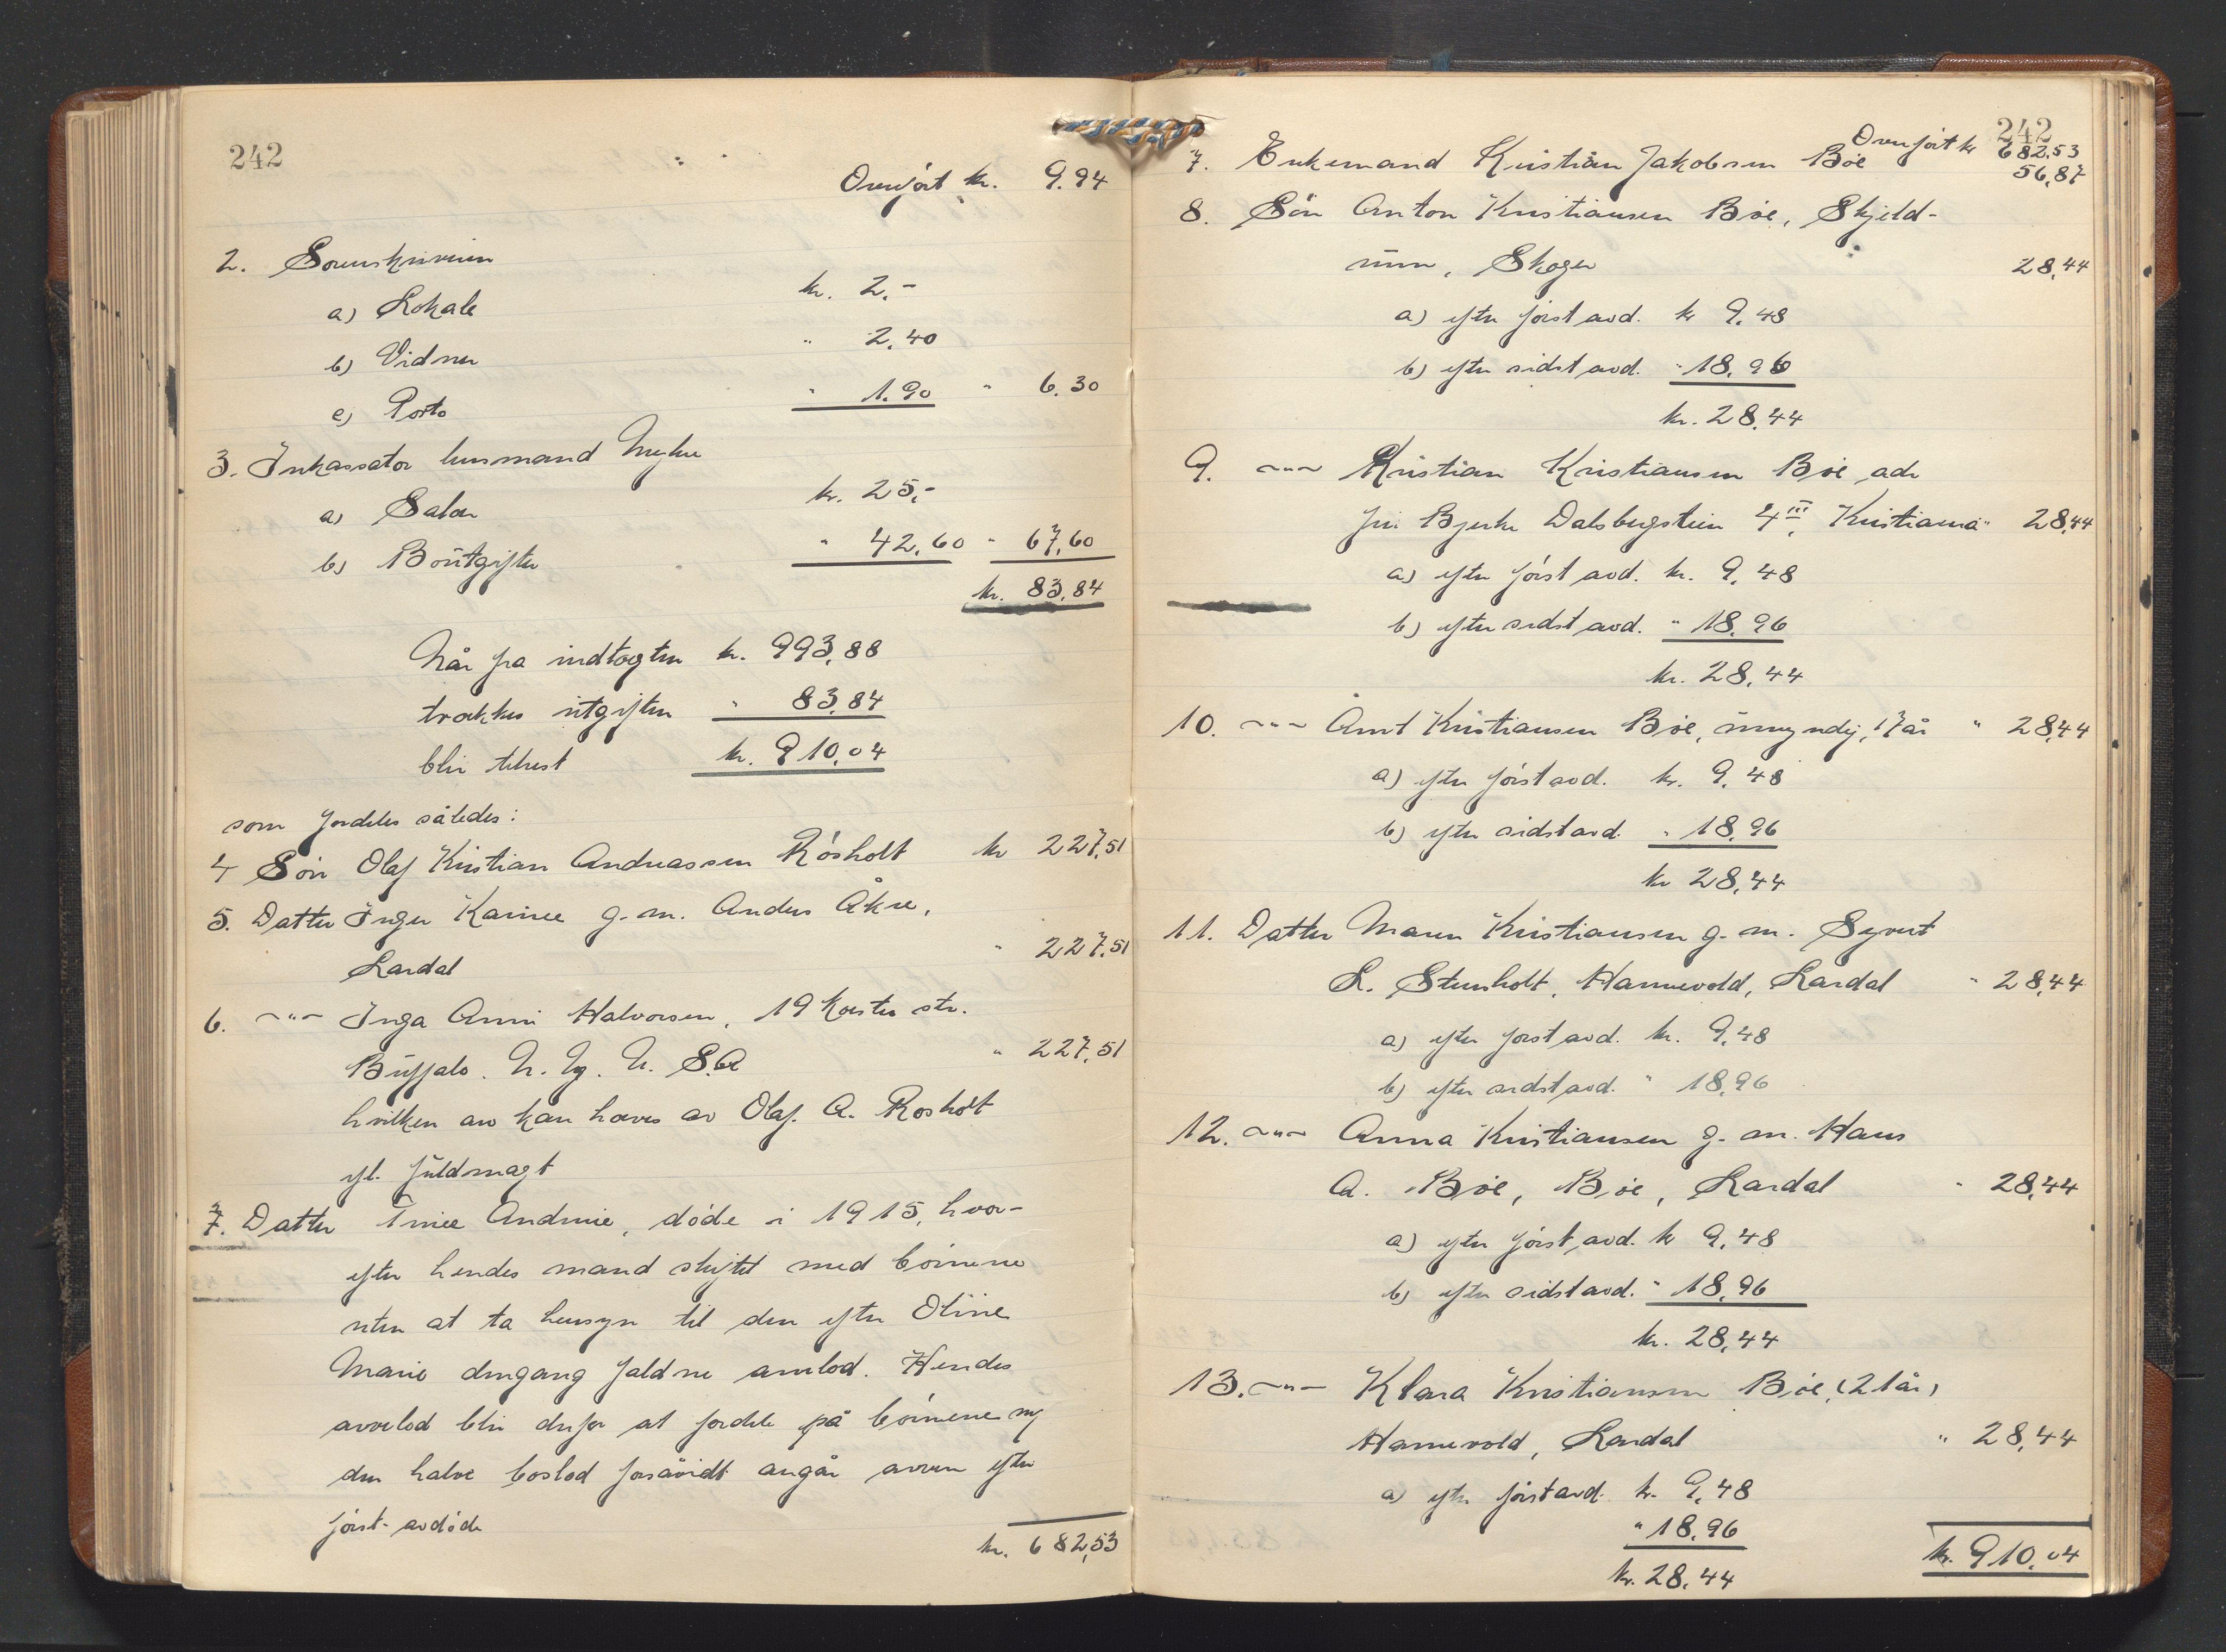 242
Overført kr. 9.94
2. Sorenskriveren
a) Lokale kr. 2.-
b) Vidner " 2.40
c) Porto " 1.90 " 6.30
3. Inkassator lensmand Myhre
a) Salær kr. 25,-
b) Boutgifter " 42,60 " 67,60
kr. 83,84
Når fra indtægten kr. 993,88
trækkes utgiften " 83,84
blir tilrest kr. 910,04
som fordeles således:
4 Søn Olaf Kristian Andreassen Rösholt kr 227,51
5. Datter Inger Karine g. m. Anders Åkre,
Lardal " 227,51
6. -"- Inga Anni Halvorsen, 19 Koester str.
Buffalo. N. Y. U. S.A " 227,51
hvilken arv kan hæves av Olaf. A. Rosholt
ifl. fuldmagt
7. Datter Trine Andrine, döde i 1915, hvor-
efter hendes mand skiftet med börnene
uten at ta hensyn til den efter Oline
Marie dengang faldne arvelod. Hendes
arvelod blir derfor at fordele på börnene og
den halve boslod forsåvidt angår arven efter
först-avdöde
kr. 682,53
242
Overført kr 682,53
7. Enkemand Kristian Jakobsen Bøe 56,87
8. Sön Anton Kristiansen Bøe, Skjeld-
rum, Skoger 28,44
a) efter förstavd. kr 9,48
b) efter sidstavd. " 18,96
kr. 28,44
9. -"- Kristian Kristiansen Bøe adr
frü Bjerke Dalsbergstien 4 III, Kristiania " 28,44
a) efter förstavd. kr. 9,48
b) efter sidstavd. " 18,96
kr. 28,44
10. -"- Arnt Kristiansen Bøe, umyndig, 17 år " 28,44
a) efter förstavd. kr. 9,48
b) efter sidstavd. " 18,96
kr 28,44
11. Datter Maren Kristiansen g. m. Syvert
L. Stensholt, Hannevold, Lardal " 28,44
a) efter førstavd. kr. 9,48
b) efter sidstavd. " 18,96
12. -"- Anna Kristiansen g. m. Hans
A. Bøe, Bøe, Lardal " 28,44
a) efter förstavd. kr 9,48
b) efter sidstavd. " 18,96
kr. 28,44
13. -"- Klara Kristiansen Bøe, (21 år)
Hannevold, Lardal " 28,44
a) efter förstavd. kr. 9,48
" 18,96
kr. 28,44
kr. 910,04